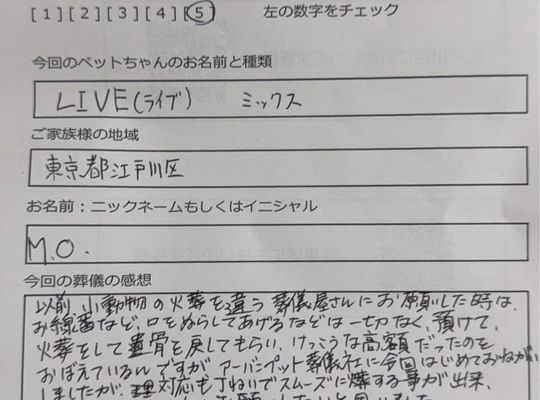 [1] [2] [3] [4] [5] 左の数字をチェック
今回のペットちゃんのお名前と種類
LIVE(ライブ) ミックス
ご家族様の地域
東京都江戸川区
お名前：ニックネームもしくはイニシャル
M.O.
今回の葬儀の感想
以前、小動物の火葬を違う葬儀屋さんにお願いした時は、
お線香など、口をぬらしてあげるなどは一切なく、預けて、
火葬をして遺骨を戻してもらい、けっこうな高額だったのを
おぼえているんですが、アーバンペット葬儀社に今回はじめておねがい
しましたが、対応も丁ねいでスムーズに する事が出来、